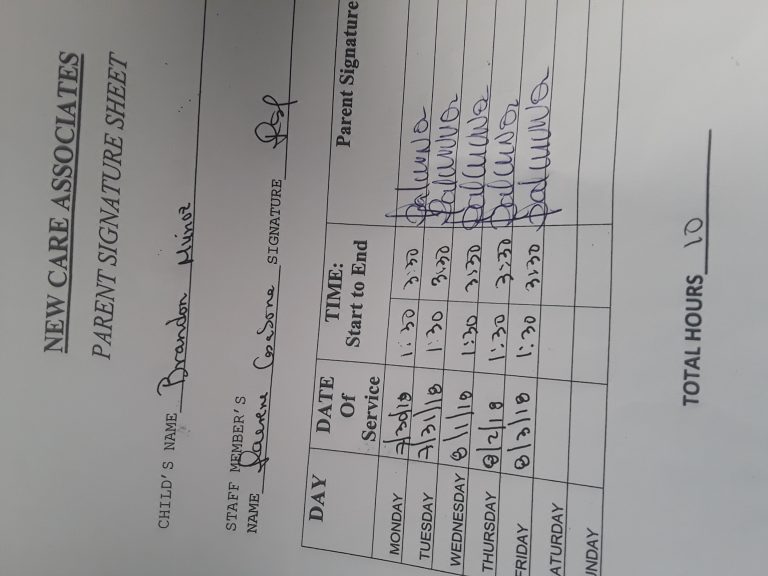 NEW CARE ASSOCIATES
PARENT SIGNATURE SHEET
CHILD'S NAME Brandon Munoz
STAFF MEMBER'S
NAME SIGNATURE
DAY DATE Of Service TIME: Start to End Parent Signature
MONDAY 7/30/18 1:30 3:30
TUESDAY 7/31/18 1:30 3:30
WEDNESDAY 8/1/18 1:30 3:30
THURSDAY 8/2/18 1:30 3:30
FRIDAY 8/3/18 1:30 3:30
ATURDAY
UNDAY
TOTAL HOURS 10